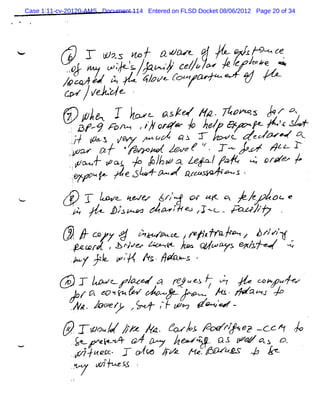 Case 1:11-cv-20120-AMS Document 114 Entered on FLSD Docket 08/06/2012 Page 20 of 34
⑥ I was not aware of the existance
of my wife's/family cellular telephone
located in the Glove Compartment of the
car/vehicle.
⑦ When I have asked Mr. Thomas for a,
BP-9 Form, in order to help Exponge this shot
it was very much as I have declared a
war at "Personal Level". In fact ALL I
want was to follow a Legal Path in order to
exponge the shot and accusations.
⑧ I have never bring or use a telephone
in the Dismas charities, Inc. Facility.
⑨ A copy of insurance, registration, Driving
Record, Driver License has always existed in
my file with Ms. Adams.
⑩ I have placed a request, in the computer
for a counselor change from Ms. Adams to
Mr. Lovery, but it was denied-
I would like Mr. Carlos Rodriguez - CCM to
be present at any hearing as well as a
witness. I also like Mr. Barnes to be
my witness